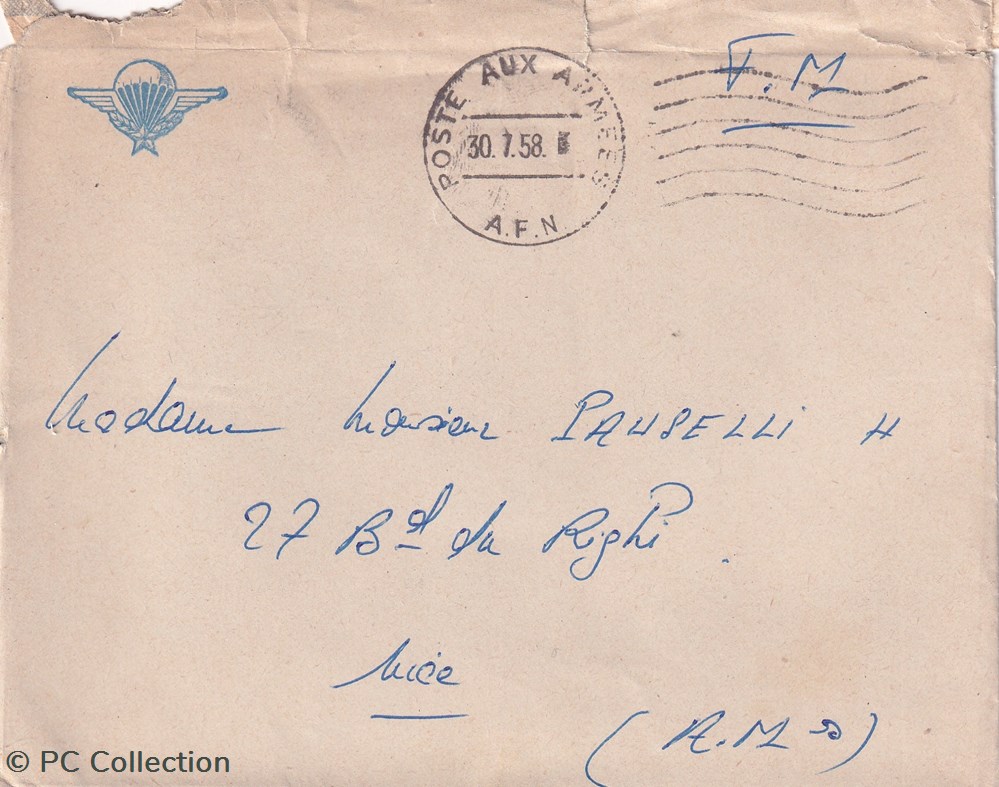 POSTE AUX ARMEES
30.7.58.
A.F.N.
F.M
Madame Monsieur PAUSELLI H
27 Bd du Righi.
Nice
(A.Mes)
© PC Collection